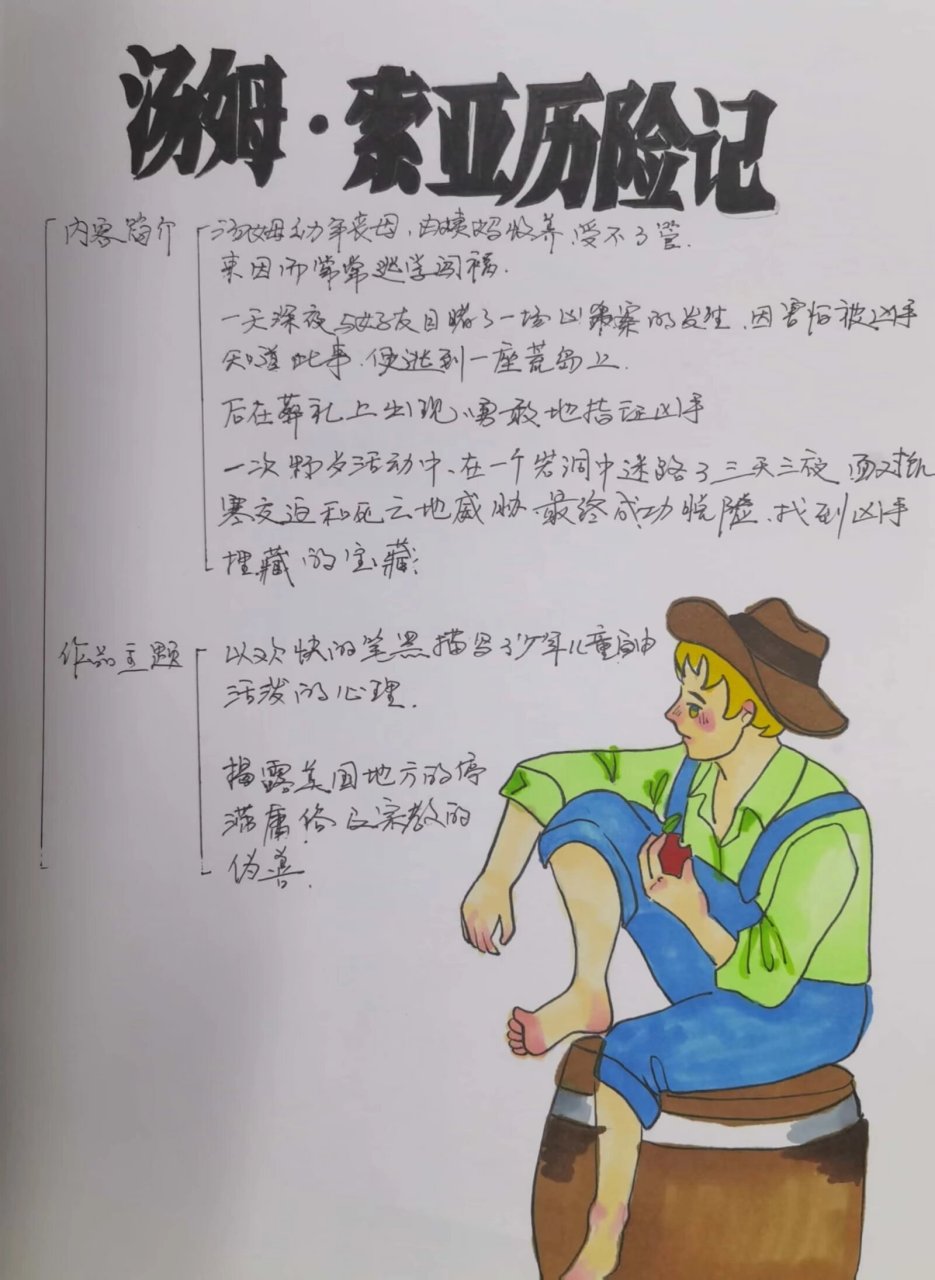 汤姆·索亚历险记
内容简介
汤姆幼年丧母,由姨妈收养.受不了管.
束因而常常逃学闯祸.
一天深夜与好友目睹了一场凶杀案的发生,因害怕被凶手
知道此事.便逃到一座荒岛上.
后在葬礼上出现,勇敢地指证凶手
一次野炊活动中、在一个岩洞中迷路了三天三夜 面对饥
寒交迫和死亡地威胁 最终成功脱险.找到凶手
埋藏的宝藏.
作品主题
以欢快的笔墨描写了少年儿童自由
活泼的心理.
揭露美国地方的停
滞庸俗及宗教的
伪善.